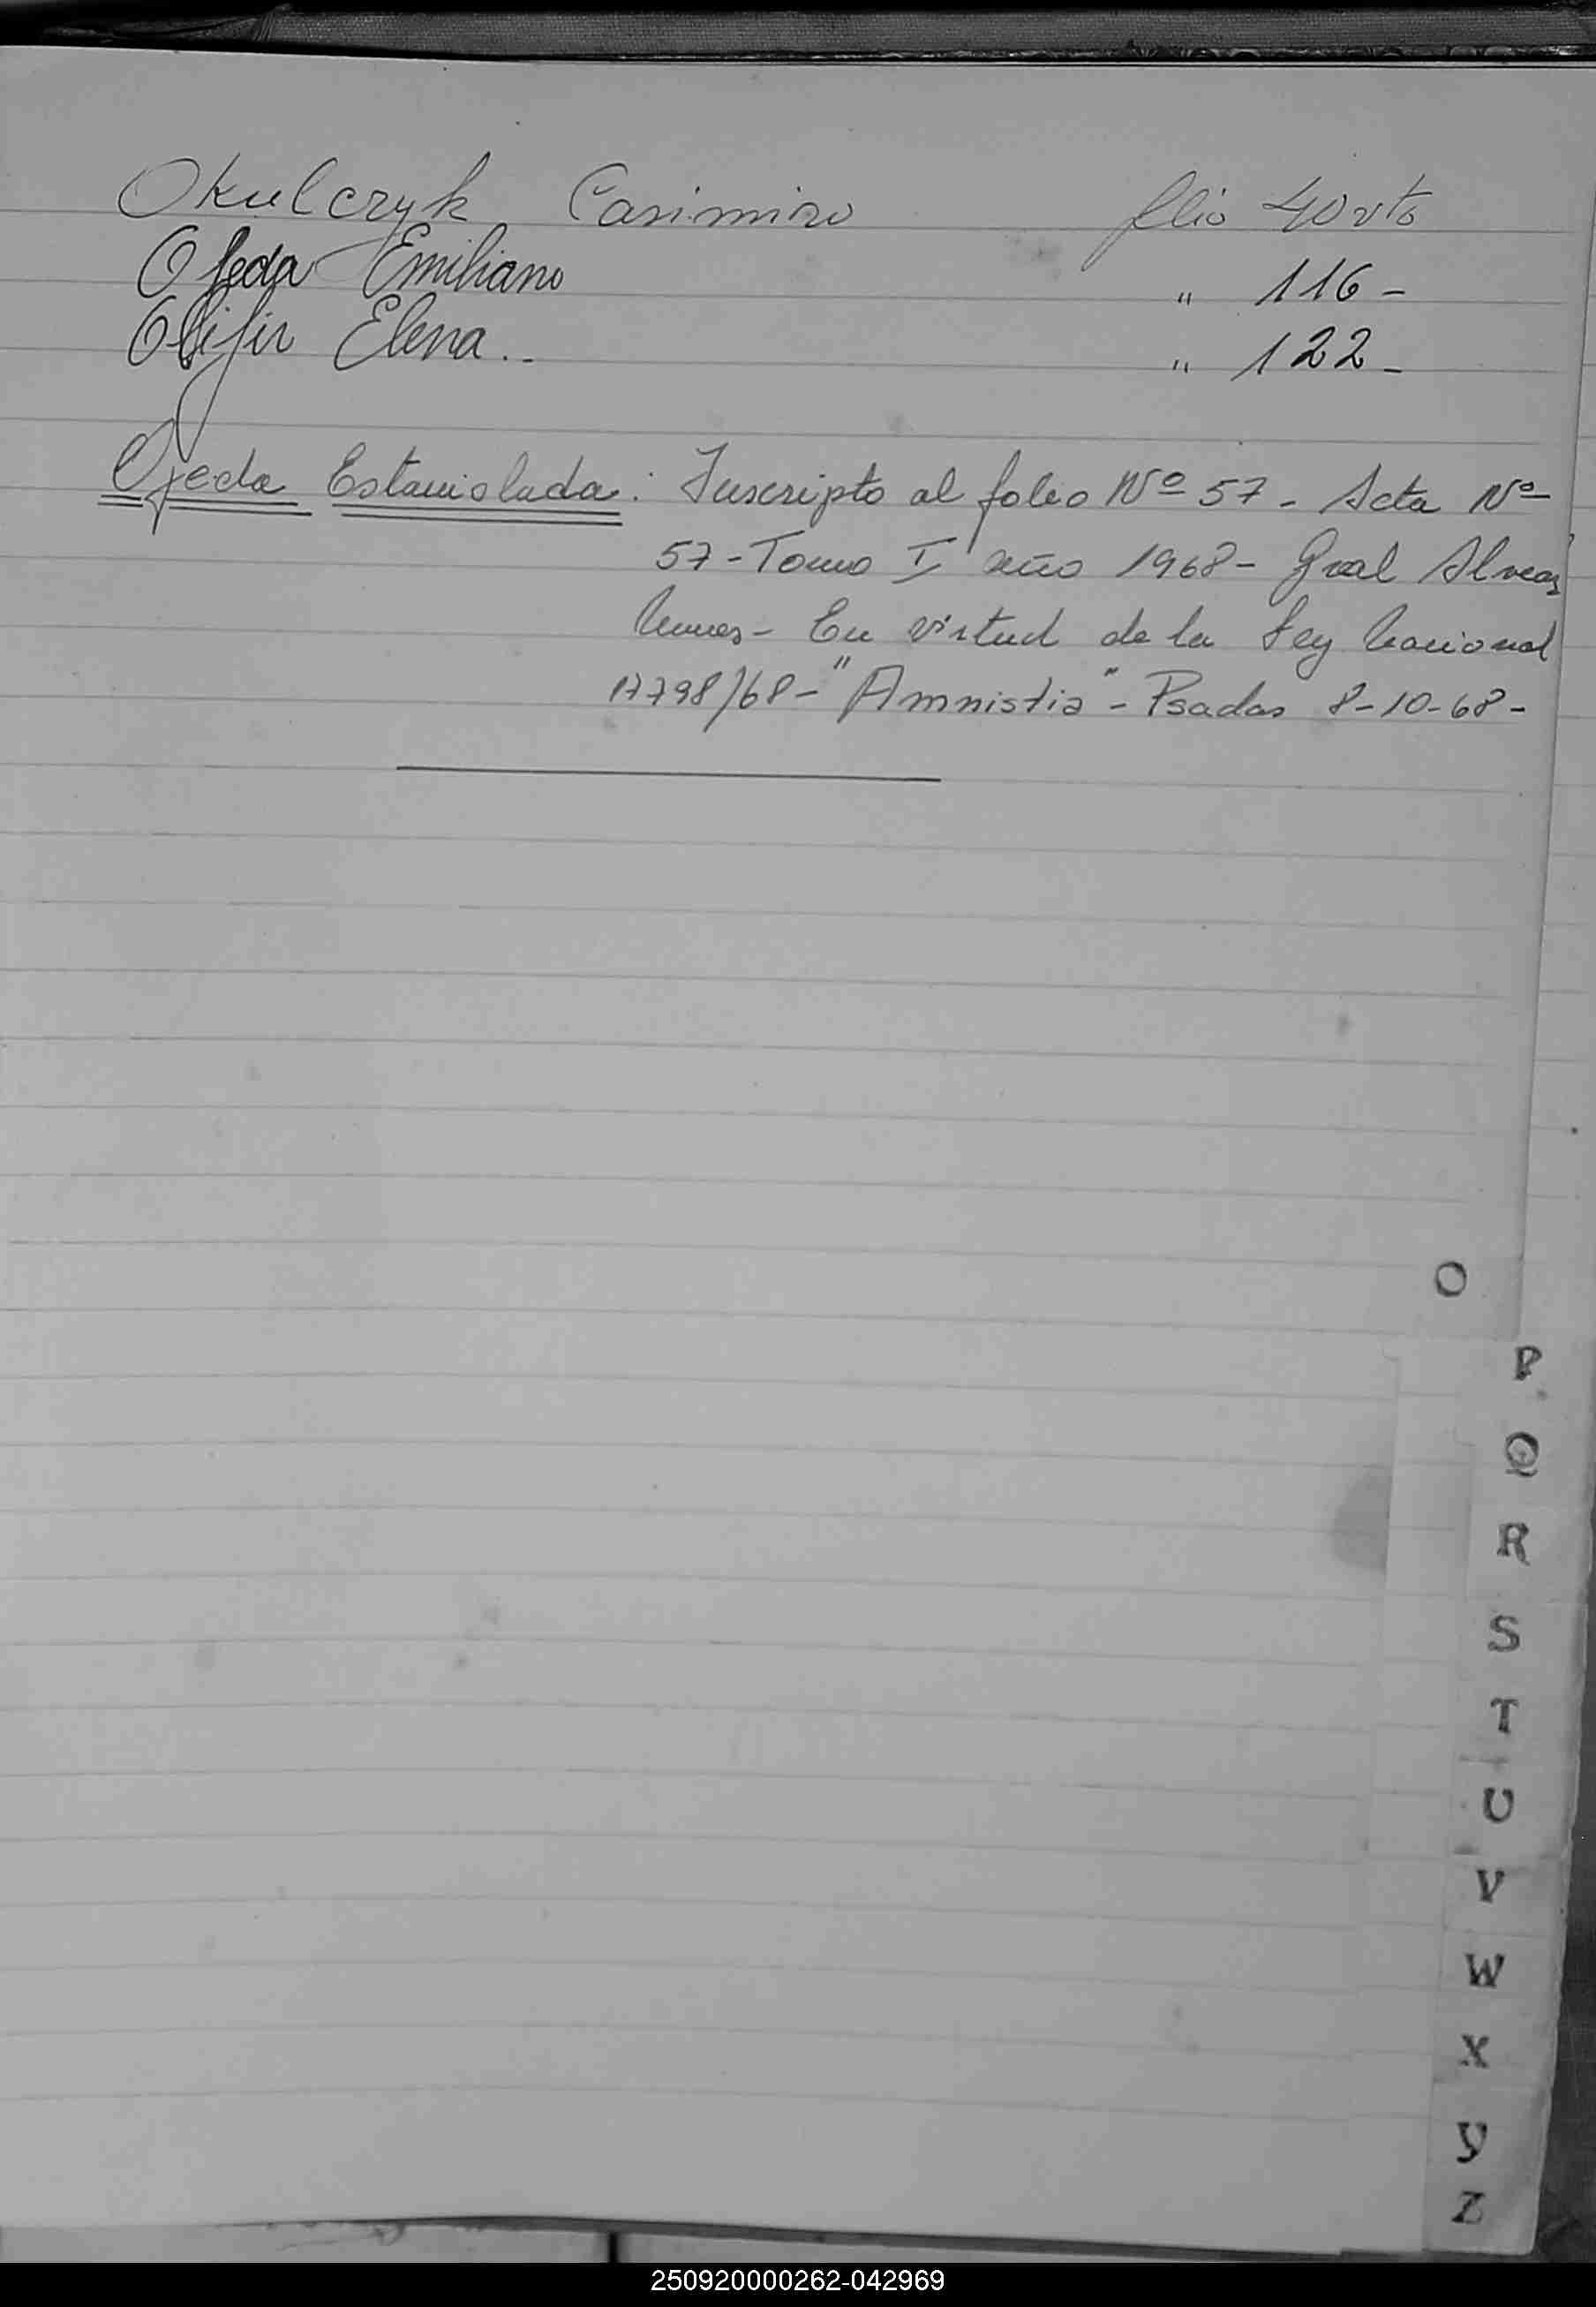 Okulczyk Casimiro folio 40 vto
Ojeda Emiliano " 116-
Olijir Elena.- " 122-
Ojeda Estanislada: Inscripto al folio Nº 57 - Acta Nº
57 - Tomo I año 1968 - Gral Alvear
- En virtud de la Ley Nacional
17798/68 - "Amnistia" - Psadas 8-10-68-
O
P
Q
R
S
T
U
V
W
X
Y
Z
250920000262-042969